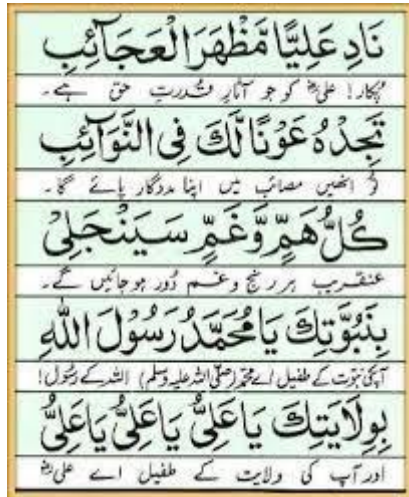 نَادِ عَلِيًّا مَّظْهَرَ الْعَجَآئِبِ
پکار! علیؓ کو جو آثارِ قدرتِ حق ہے۔
تَجِدْهُ عَوْنًا لَّكَ فِی النَّوَآئِبِ
تُو انھیں مصائب میں اپنا مددگار پائے گا۔
كُلُّ هَمٍّ وَّغَمٍّ سَيَنْجَلِیْ
عنقریب ہر رنج و غم دُور ہو جائیں گے۔
بِنَبُوَّتِكَ يَا مُحَمَّدُ رَسُوْلَ اللّٰهِ
آپکی نبوت کے طفیل اے محمد (صلی اللہ علیہ وسلم) اللہ کے رسُول!
بِوِلَايَتِكَ يَا عَلِیُّ يَا عَلِیُّ يَا عَلِیُّ
اور آپ کی ولایت کے طفیل اے علیؓ